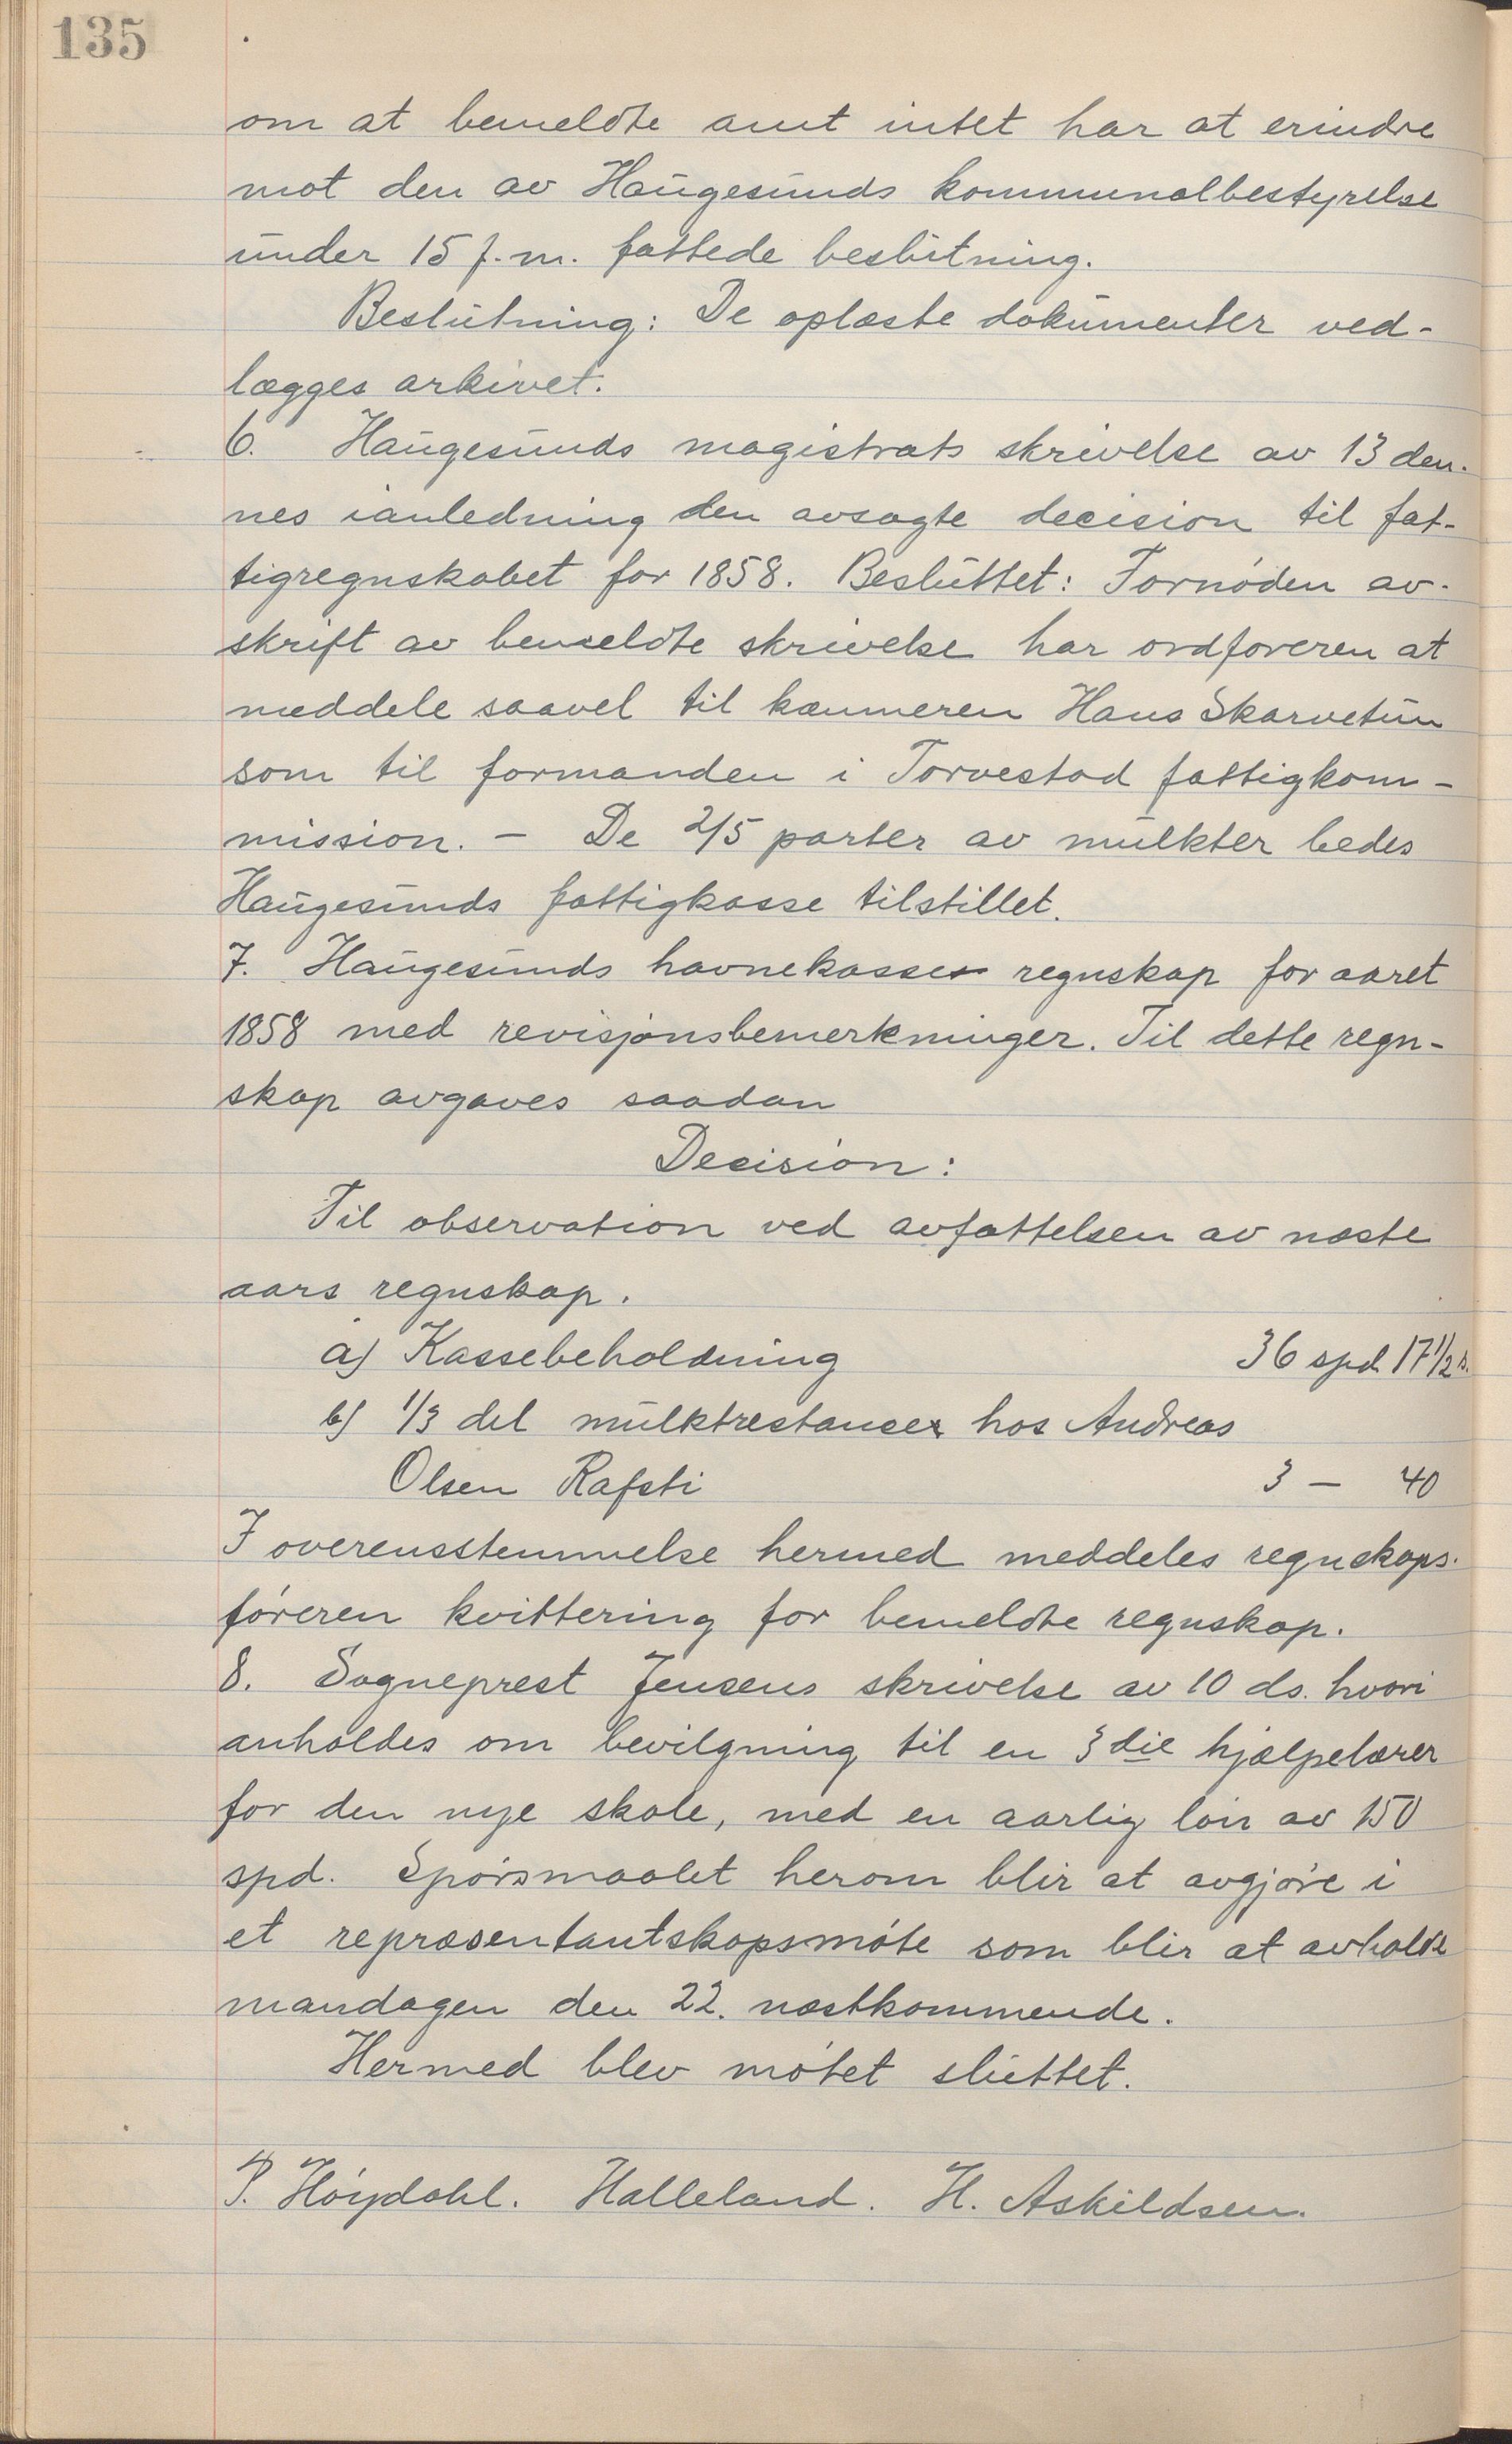 135
om at bemeldte amt intet har at erindre
mot den av Haugesunds kommunalbestyrelse
under 15 f.m. fattede beslutning.
Beslutning: De oplæste dokumenter ved-
lægges arkivet.
6. Haugesunds magistrats skrivelse av 13 den-
nes ianledning den avsagte decision til fat-
tigregnskabet for 1858. Besluttet: Fornøden av-
skrift av bemeldte skrivelse har ordføreren at
meddele saavel til kæmneren Hans Skarvetun
som til formanden i Torvestad fattigkom-
mission. - De 2/5 parter av mulkter bedes
Haugesunds fattigkasse tilstillet.
7. Haugesunds havnekasses regnskap for aaret
1858 med revisjonsbemerkninger. Til dette regn-
skap avgaves saadan
Decision:
Til observation ved avfattelsen av næste
aars regnskap.
a) Kassebeholdning 36 spd 17 1/2 s.
b) 1/3 del mulktrestancer hos Andreas
Olsen Rafsti 3 - 40
I overensstemmelse hermed meddeles regnskaps-
føreren kvittering for bemeldte regnskap.
8. Sogneprest Jensens skrivelse av 10 ds. hvori
anholdes om bevilgning til en 3die hjælpelærer
for den nye skole, med en aarlig løn av 150
spd. Spørsmaalet herom blir at avgjøre i
et repræsentantskapsmøte som blir at avholde
mandagen den 22. næstkommende.
Hermed blev møtet sluttet.
P. Høydahl. Halleland. H. Askildsen.